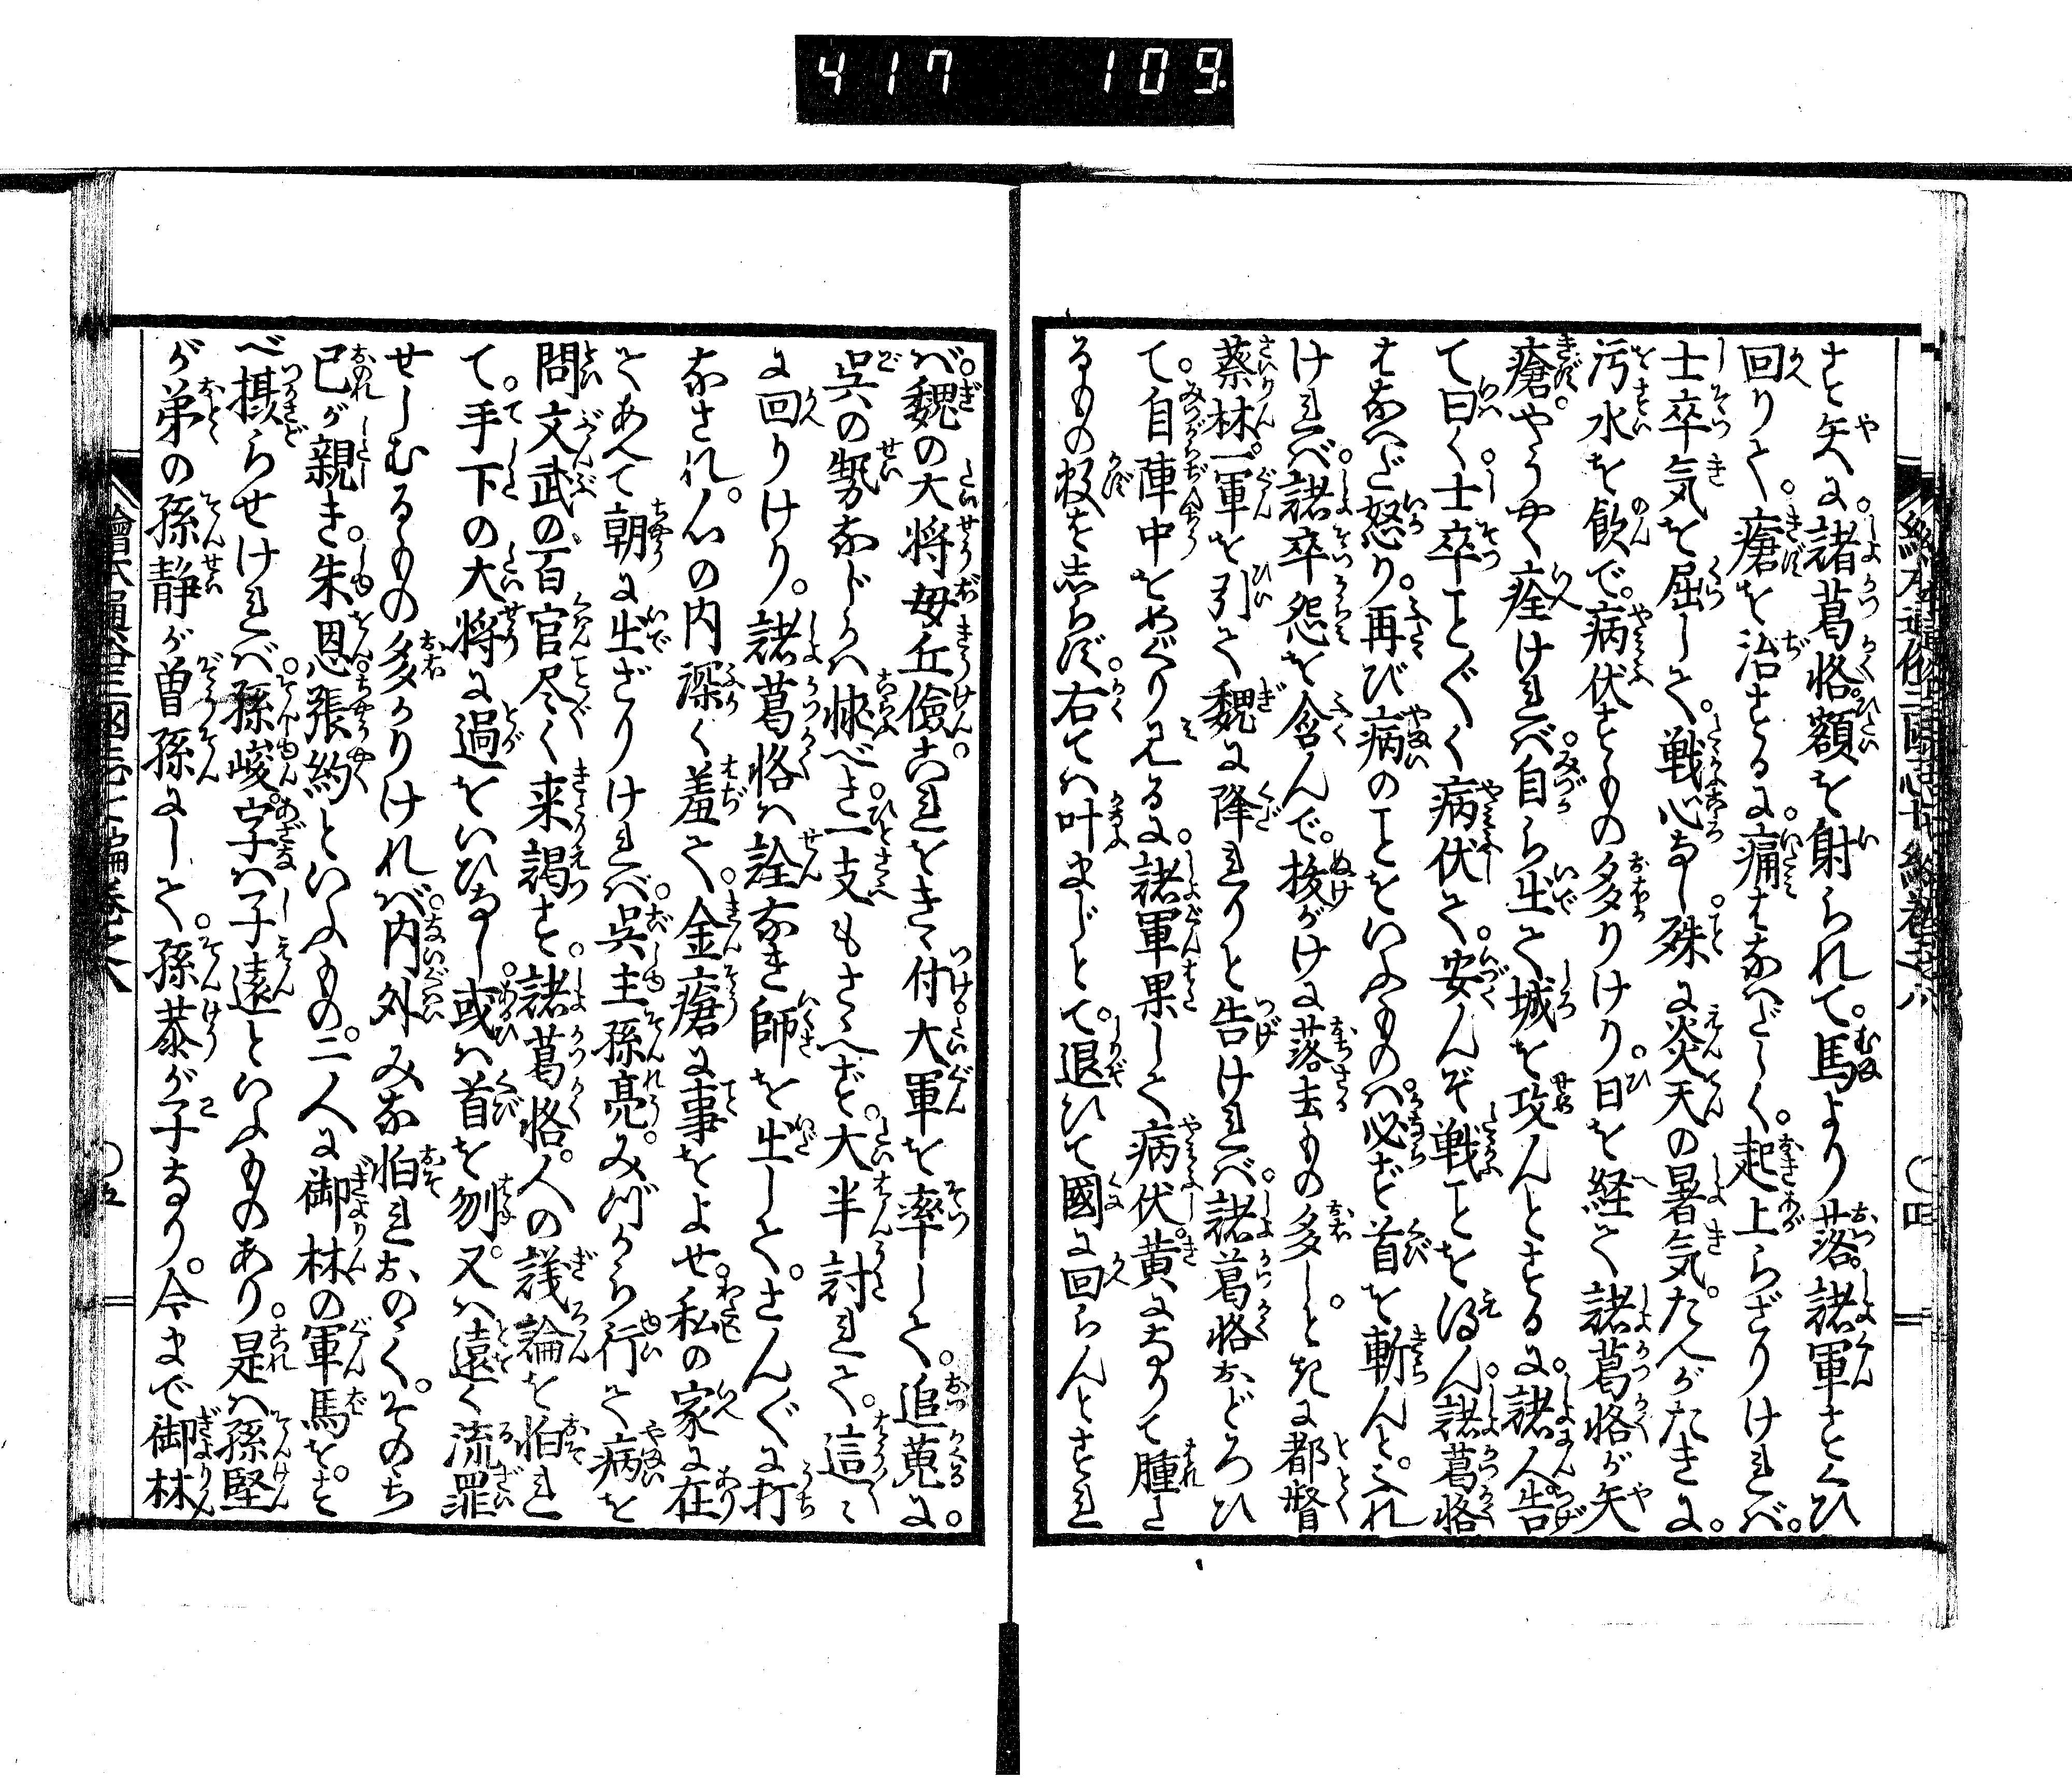 417 109
すと矢に。諸葛恪。額を射られて。馬より落。諸軍すくひ
回りて。瘡を治するに。痛はなはだしく。起上らざりければ。
士卒気を屈して。戦心なし。殊に炎天の暑気。たへがたきに。
汚水を飲で。病伏すもの多りけり。日を経て諸葛恪が矢
瘡。やうやく痊ければ。自ら出て城を攻んとするに。諸人告
て曰く。士卒ことごとく病伏て。安んぞ戦ことを得ん。諸葛恪
はなはだ怒り。再び病のことをいふものハ。必ず首を斬んと。ふれ
ければ。諸卒怨を含んで。抜がけに落去もの多し。ときに都督
蔡林。一軍を引て魏に降れりと告ければ。諸葛恪おどろひ
て。自陣中をめぐり見るに。諸軍果して病伏。黄になりて腫た
るもの数を志らず。右てハ叶まじとて。退ひて國に回らんとすれ
ば。魏の大将毋丘儉。これをきゝ付。大軍を率して。追蒐に。
呉の勢なじかハ悚べき。一支もさゝへず。大半討れて。這〻
に回りけり。諸葛恪ハ詮なき師を出して。さんざんに打
なされ。心の内深く羞て。金瘡に事をよせ。私の家に在
てあへて朝に出ざりければ。呉主孫亮。みづから行て病を
問。文武の百官尽く来謁す。諸葛恪。人の議論を怕れ
て。手下の大将に過をいひなし。或ハ首を刎。又ハ遠く流罪
せしむるもの多かりければ。内外みな怕れおのゝく。そのち
己が親き。朱恩張約といふもの。二人に御林の軍馬を。す
べ掫らせければ。孫峻。字ハ子遠といふものあり。是ハ孫堅
が弟の孫静が曽孫にして。孫恭が子なり。今まで御林
繪本通俗三國志七編巻之八 〇四
繪本通俗三國志七編巻之八 〇五